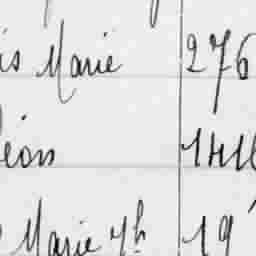 is Marie 276
éon 141
Marie Jh 19